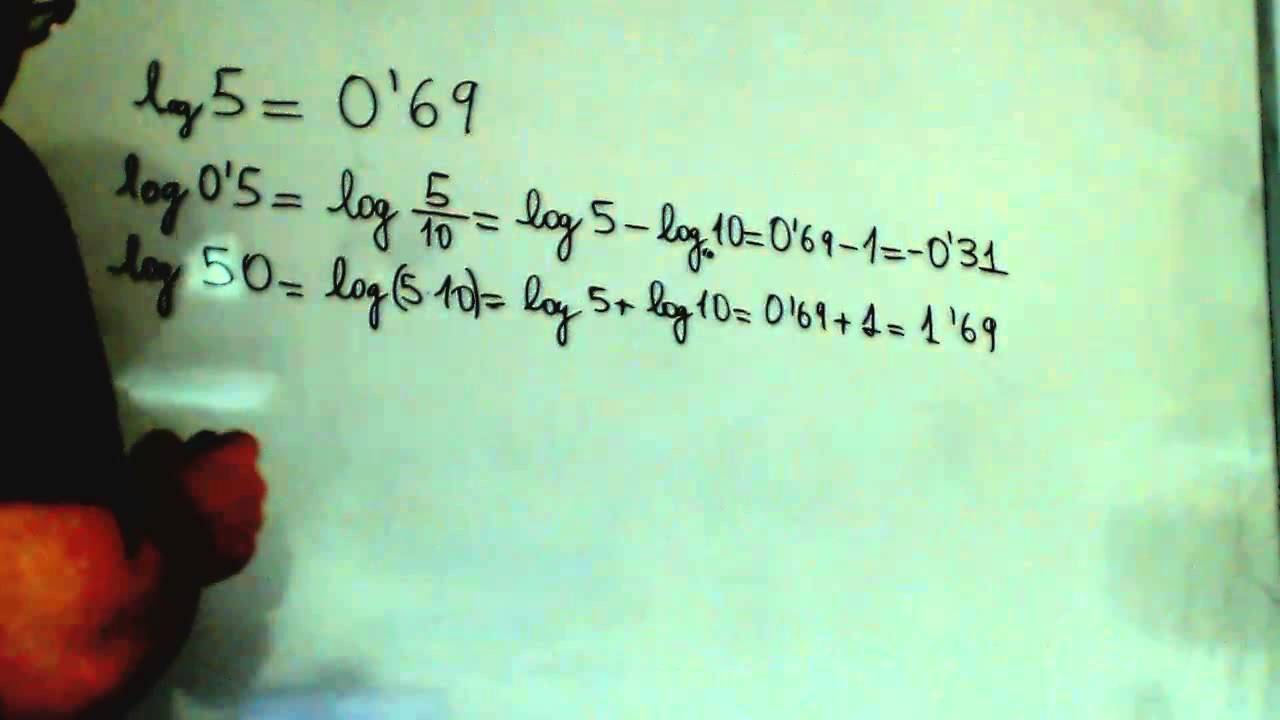 log 5 = 0'69
log 0'5 = log 5/10 = log 5 - log 10 = 0'69 - 1 = -0'31
log 50 = log (5·10) = log 5 + log 10 = 0'69 + 1 = 1'69